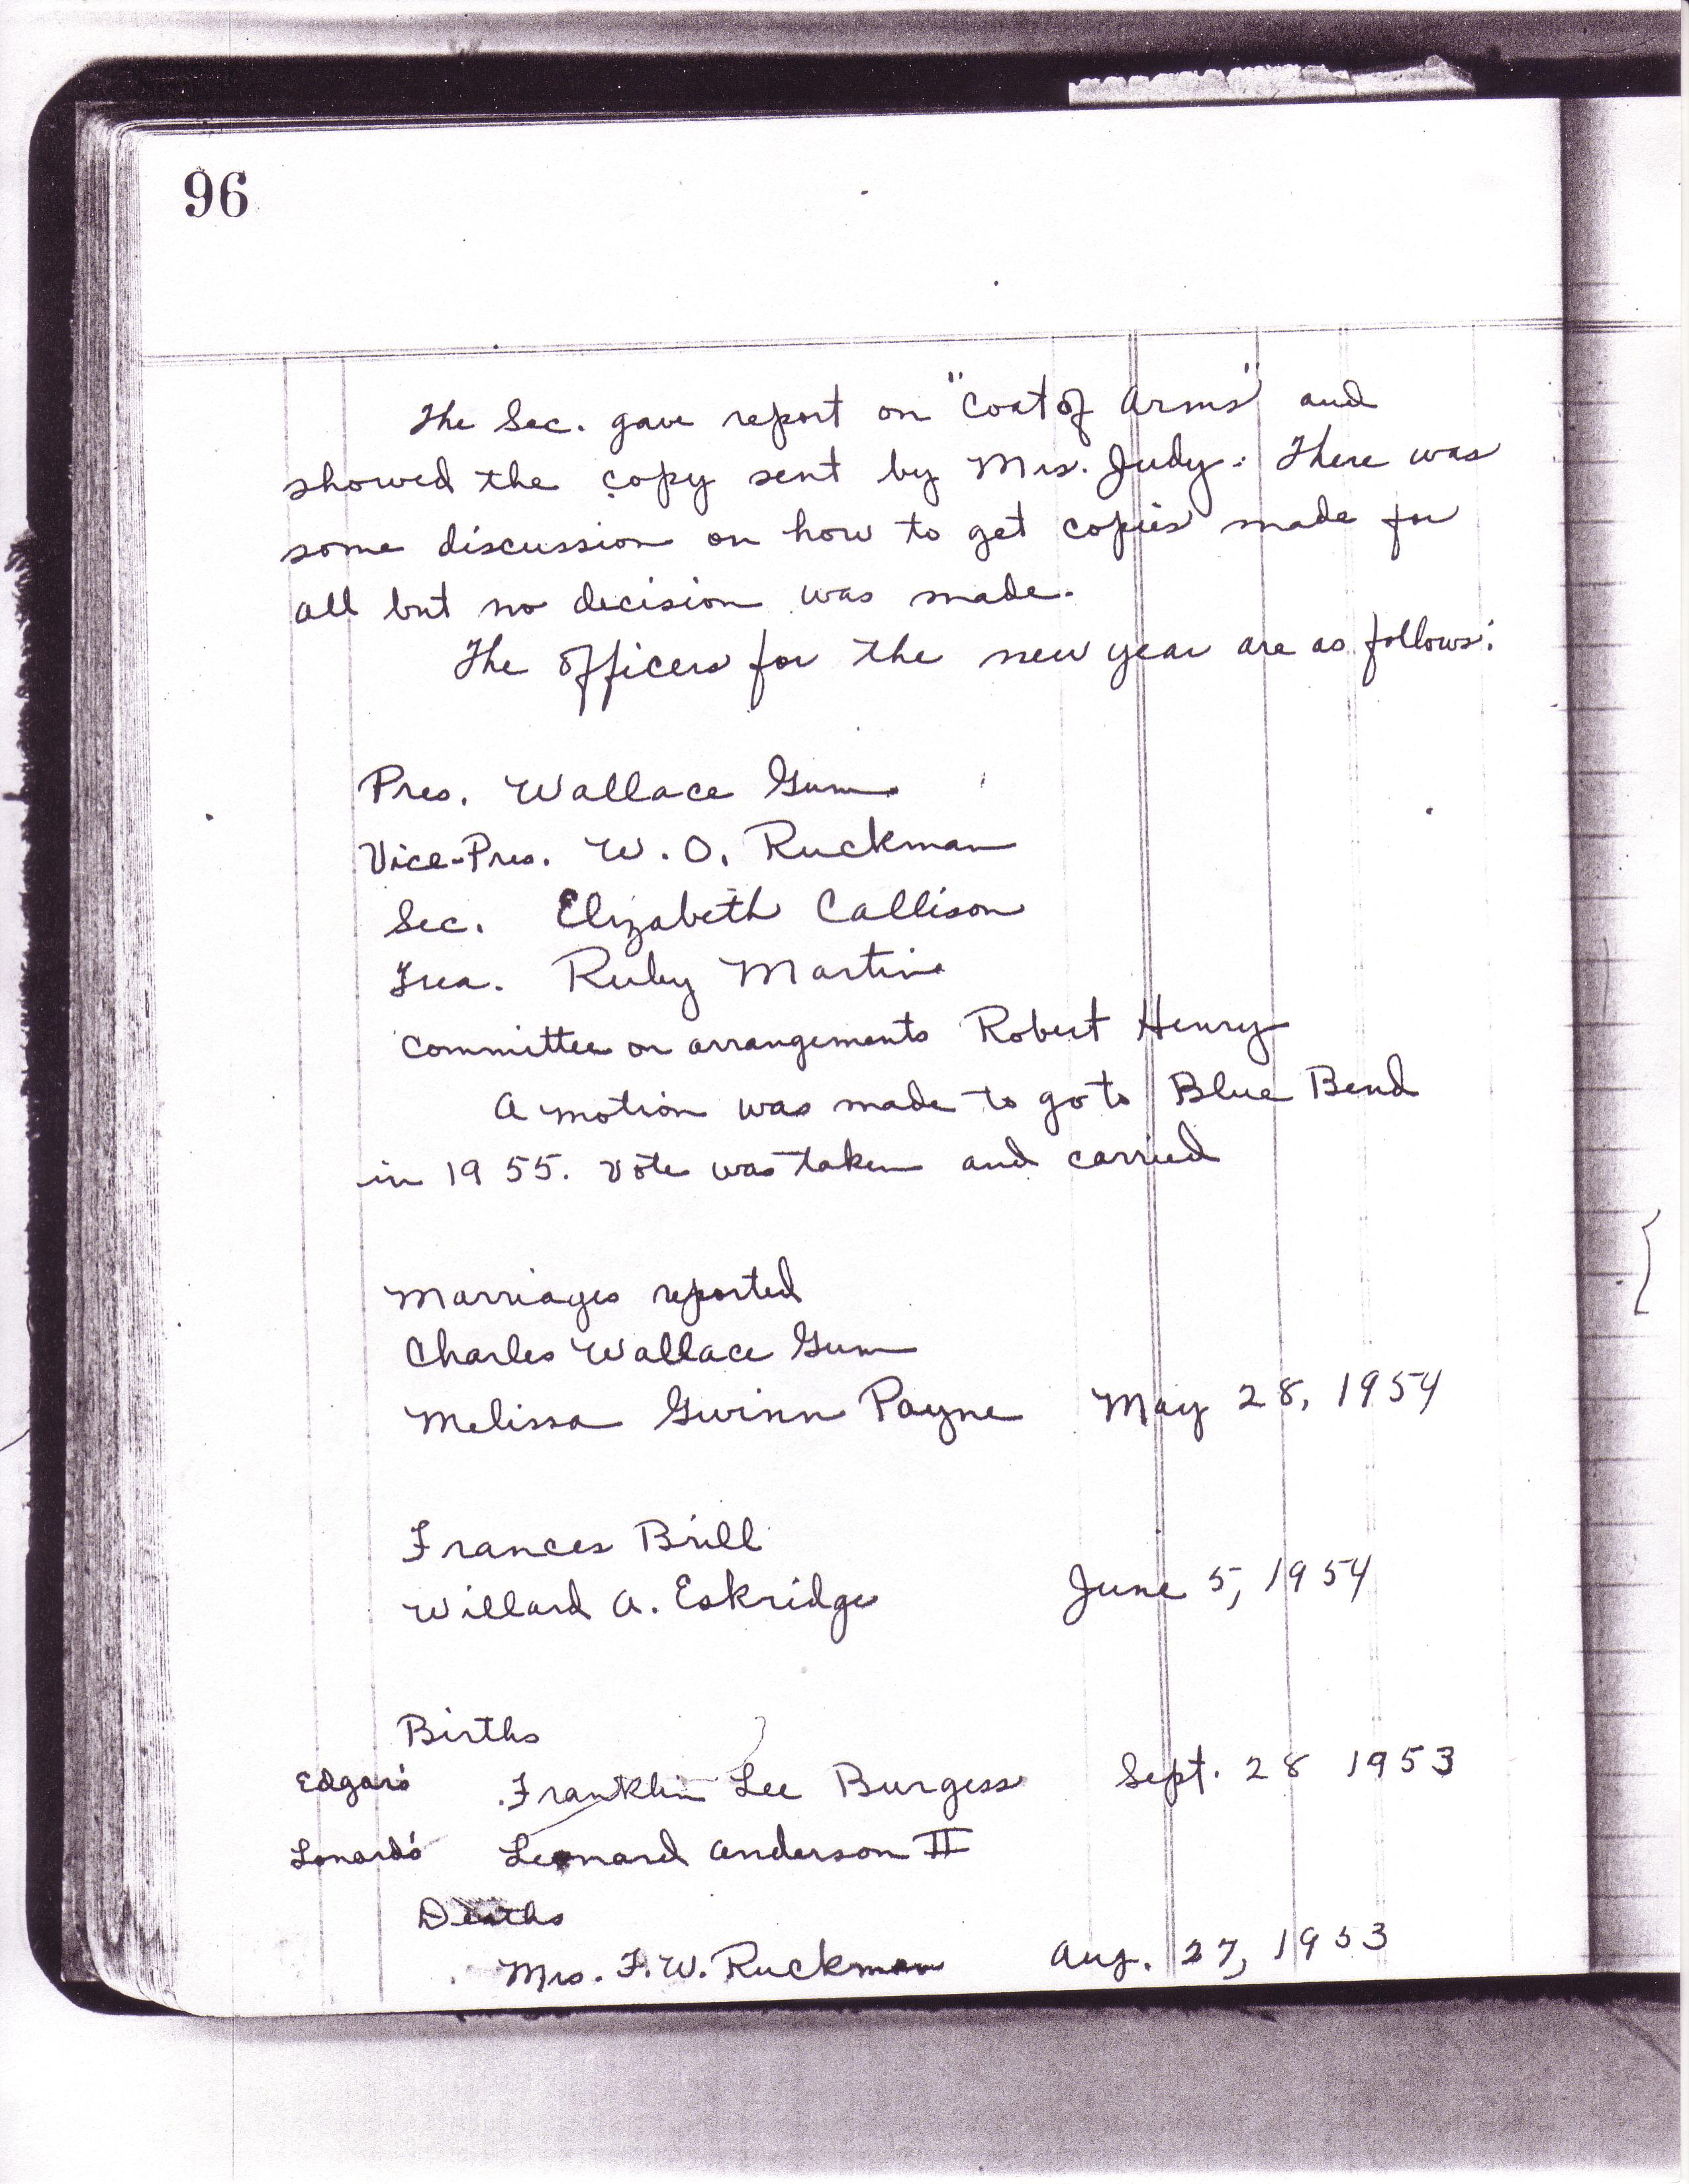 96
The Sec. gave report on "Coat of Arms" and
showed the copy sent by Mrs. Judy. There was
some discussion on how to get copies made for
all but no decision was made.
The officers for the new year are as follows:
Pres. Wallace Gum
Vice-Pres. W. O. Ruckman
Sec. Elizabeth Callison
Trea. Ruby Martin
Committee on arrangements Robert Henry
A motion was made to go to Blue Bend
in 1955. Vote was taken and carried
Marriages reported
Charles Wallace Gum
Melissa Gwinn Payne May 28, 1954
Frances Brill
Willard A. Eskridge June 5, 1954
Births
Edgar's Franklin Lee Burgess Sept. 28 1953
Lonard's Leonard Anderson II
Deaths
Mrs. F. W. Ruckman Aug. 27, 1953